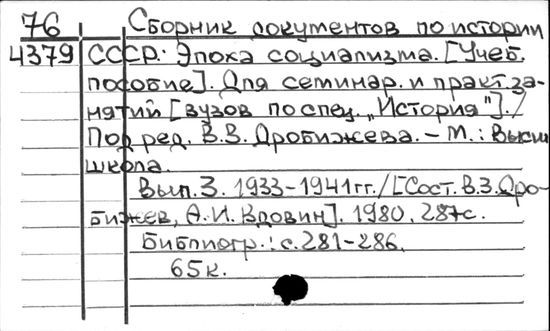 76 Сборник документов по истории
4379 СССР: Эпоха социализма. [Учеб.
пособие]. Для семинар. и практ. за-
нятий [вузов по спец. „История"]. /
Под ред. В.З. Дробижева. – М.: Высш.
школа.
Вып. 3. 1933-1941 гг. / [Сост. В.З. Дро-
бижев, А.И. Вдовин]. 1980. 287 с.
Библиогр.: с. 281-286.
65 к.